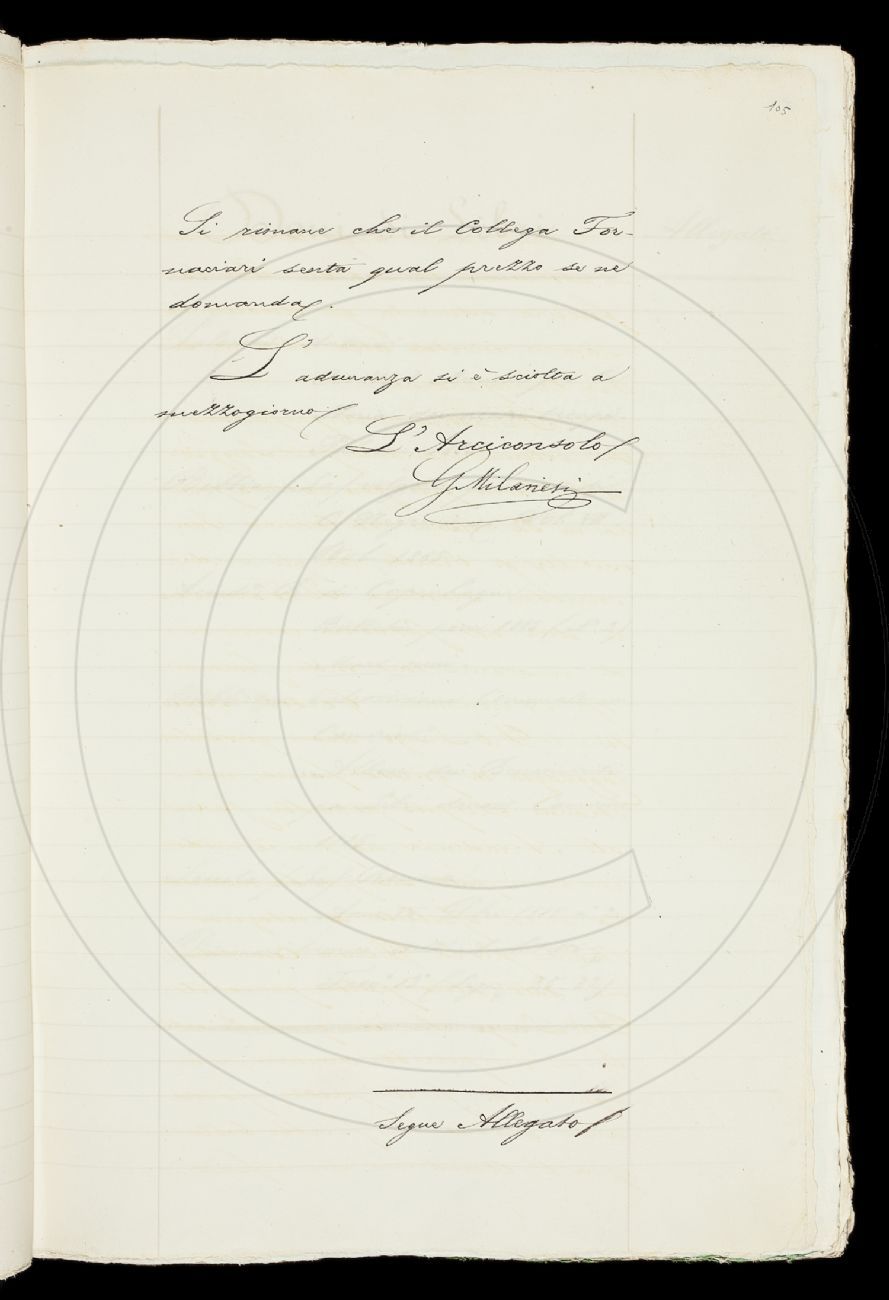 105
Si rimane che il Collega For-
naciari senta qual prezzo se ne
domanda.
L'adunanza si è sciolta a
mezzogiorno
L'Arciconsolo
G Milanesi
Segue Allegato